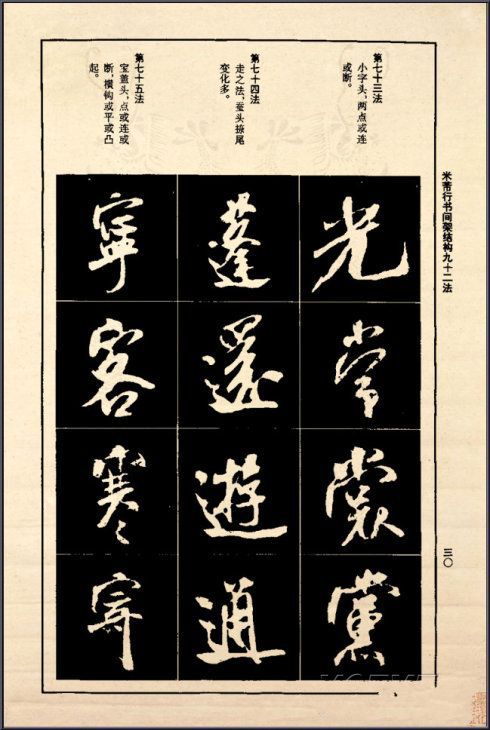 米芾行书间架结构九十二法
三〇
第七十三法
小字头，两点或连
或断。
光常裳黨
第七十四法
走之法，蚕头掠尾
变化多。
蓬還遊通
第七十五法
宝盖头，点或连或
断，横钩或平或凸
起。
寧客寒寄